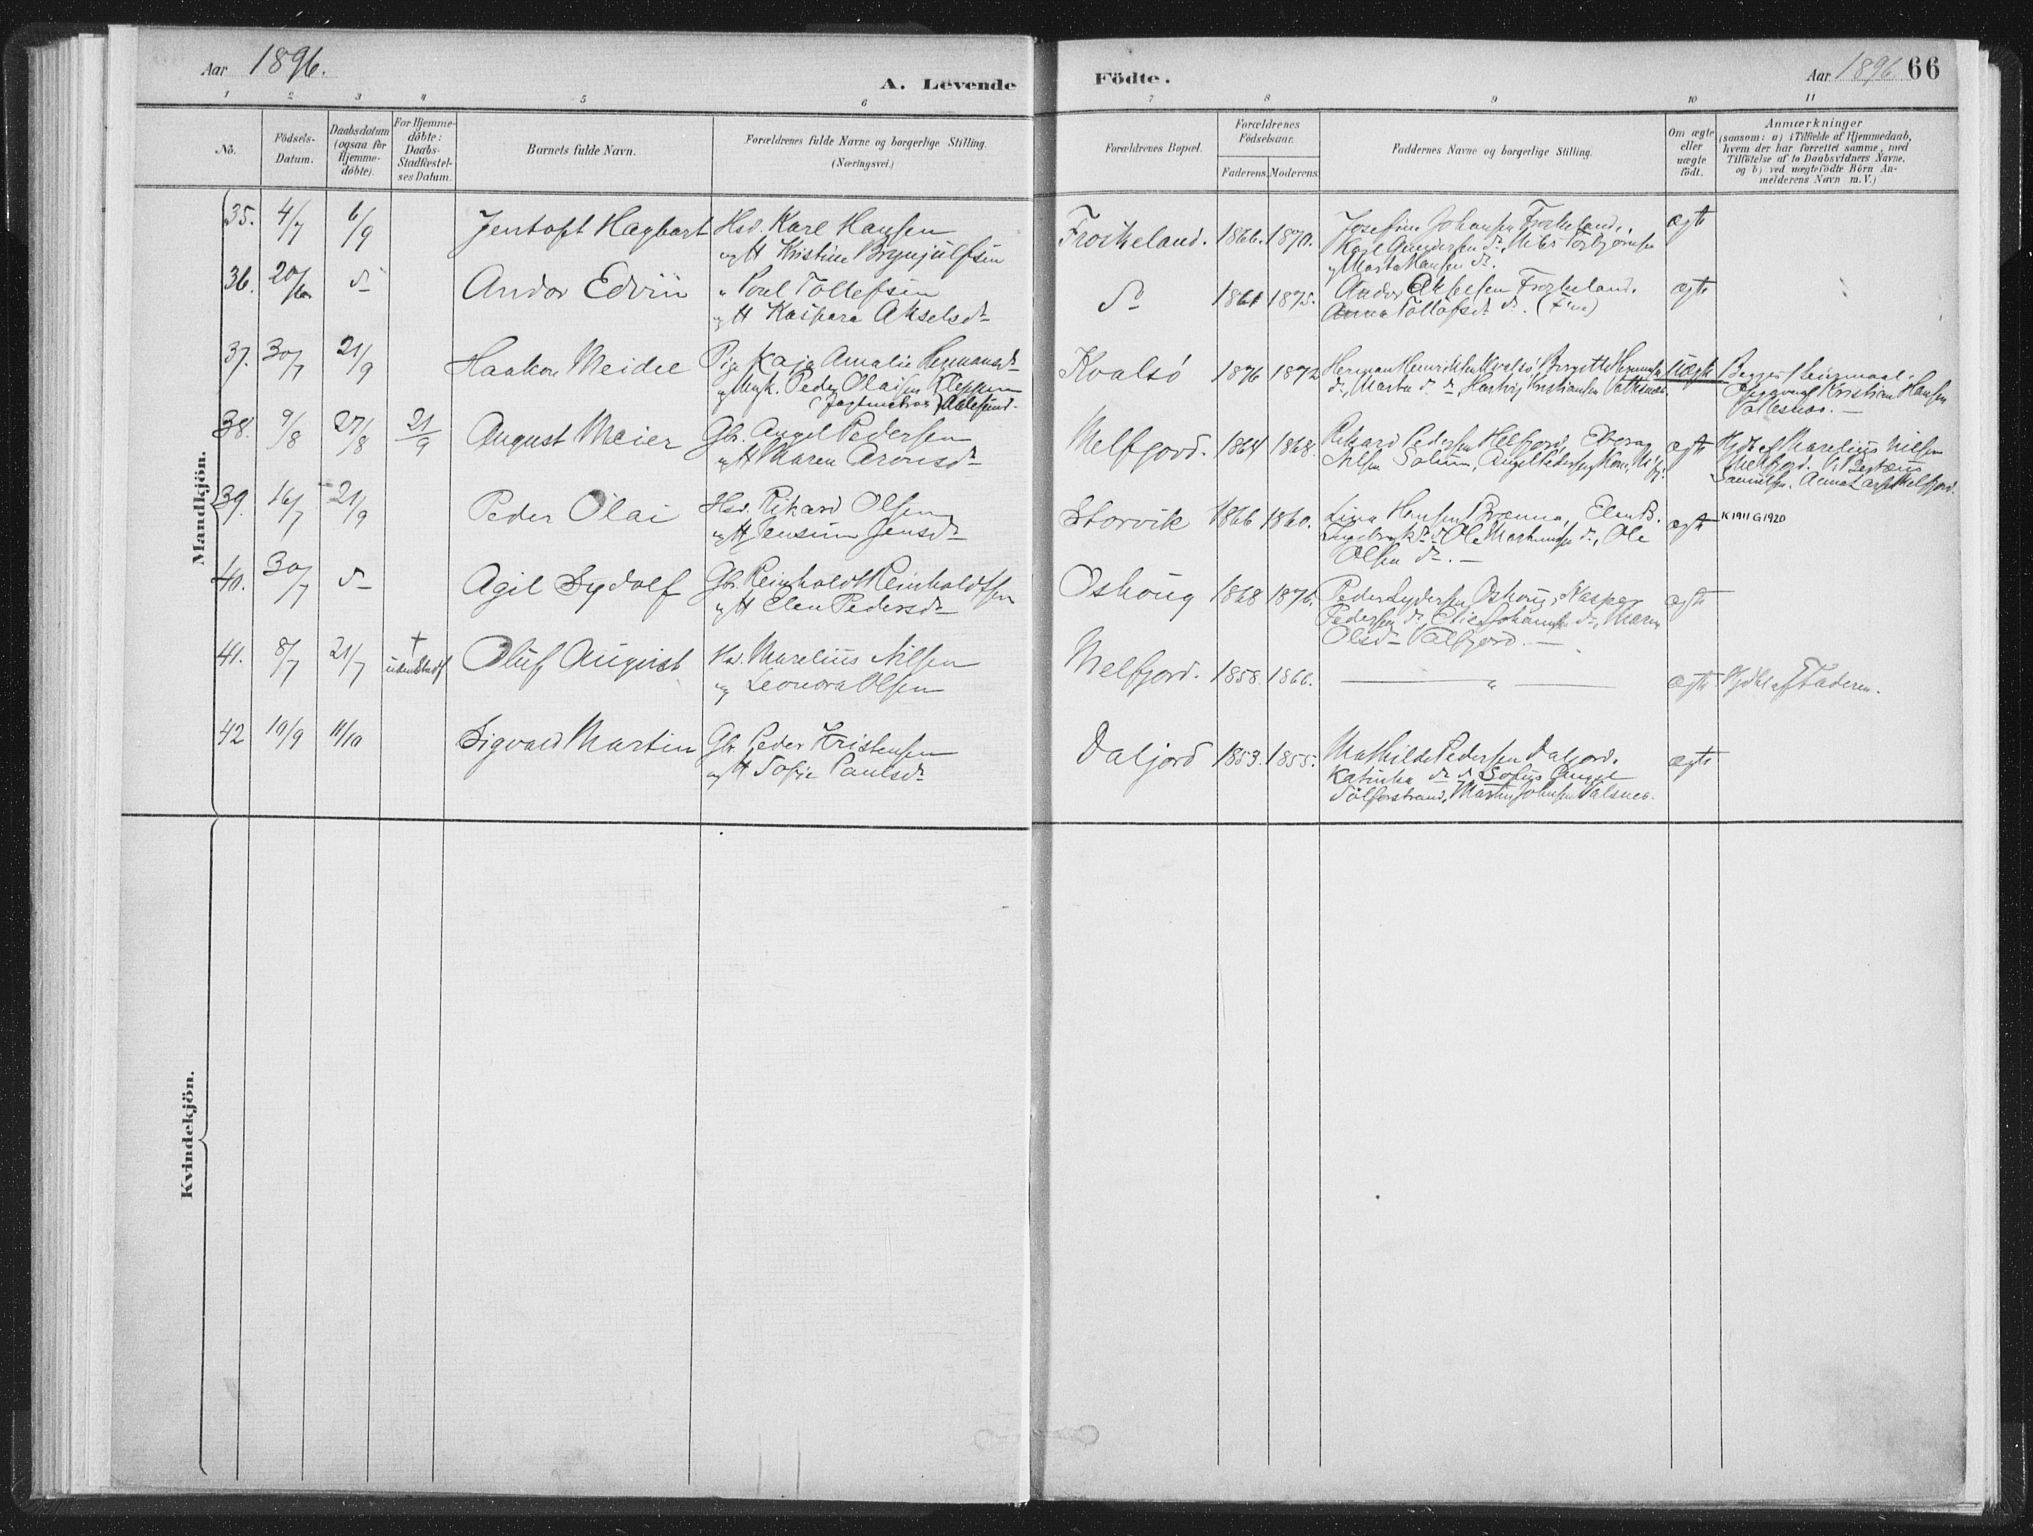 Aar 1896.
A. Levende
Födte.
Aar 1896 66
1 2 3 4 5 6 7 8 9 10 11
No.
Födsels-
Datum.
Daabsdatum
(ogsaa for
Hjemme-
döbte).
For Hjemme-
döbte:
Daabs-
Stadfestel-
ses Datum.
Barnets fulde Navn.
Forældrenes fulde Navne og borgerlige Stilling.
(Næringsvei.)
Forældrenes Bopæl.
Forældrenes
Födselsaar.
Faderens. Moderens.
Faddernes Navne og borgerlige Stilling.
Om ægte
eller
uægte
födt.
Anmærkninger
(saasom: a) i Tilfælde af Hjemmedaab,
hvem der har forrettet samme, med
Tilföielse af to Daabsvidners Navne,
og b) ved uægtefödte Börn An-
melderens Navn m. V.)
Mandkjön.
35. 4/7 6/9 Jentoft Hagbart Hsd. Karl Hansen
og H Kristine Brynjulfsen
Froskeland. 1866. 1870. Josefine Johansen Froskeland,
Karl Gundersen do, Nils Torbjørnsen
og Marta Hansen do.
ægte
36. 20/6 do Andor Edvin " Poul Tollefsen
og H Kaspara Akselsdr
do 1861 1875. Andor Akselsen Froskeland.
Anna Tollefsdr do.
ægte
37. 30/7 21/9 Haakon Meidel Pige Kaja Amalie Hermansdr
og Ungk. Peder Olaisen Kleppen
Aalesund.
Kvalsö 1876 1872 Herman Henriksen Kvalsö, Birgitte
do, Marta do, Hartvig Kristiansen
uægte
Begges 1 Leiermaal.
Kristian Hansen
38. 9/8 27/8 21/9 August Meier Gbr. Angel Pedersen
og H Maren Aronsdr
Melfjord. 1864 1868. Rikard Pedersen Melfjord,
Nilsen Solum, Angel Pedersen
ægte
Hjdbt af Marelius Nilsen
Melfjord.
39. 16/7 21/9 Peder Olai Hsd. Rikard Olsen
og H Jensine Jensdr
Storvik 1866 1860. Lina Hansen
do Ole Martinussen do, Ole
Olsen do.
ægte K 1911 G 1920
40. 30/7 do Agil Sydolf Gbr. Reinholdt Reinholdtsen
og H Elen Pedersdr
Oshoug 1868 1876. Peder Lydersen Oshoug, Kasper
Pedersen do, Johansen do, Maren
Olsdr Valfjord.
ægte
41. 8/7 21/7 † uden Stadf Oluf Auqvist Hsd. Marelius Nilsen
og Leonora Olsen
Melfjord. 1858. 1866. — " —
ægte Hjdbt af Faderen.
42 19/9 11/10 Sigvald Martin Gbr. Peder Kristensen
og H Sofie Paulsdr
Daljord 1853. 1855. Mathilde Pedersen Daljord.
Katinka do
Martin Johnsen Valsnes.
ægte
Kvindekjön.